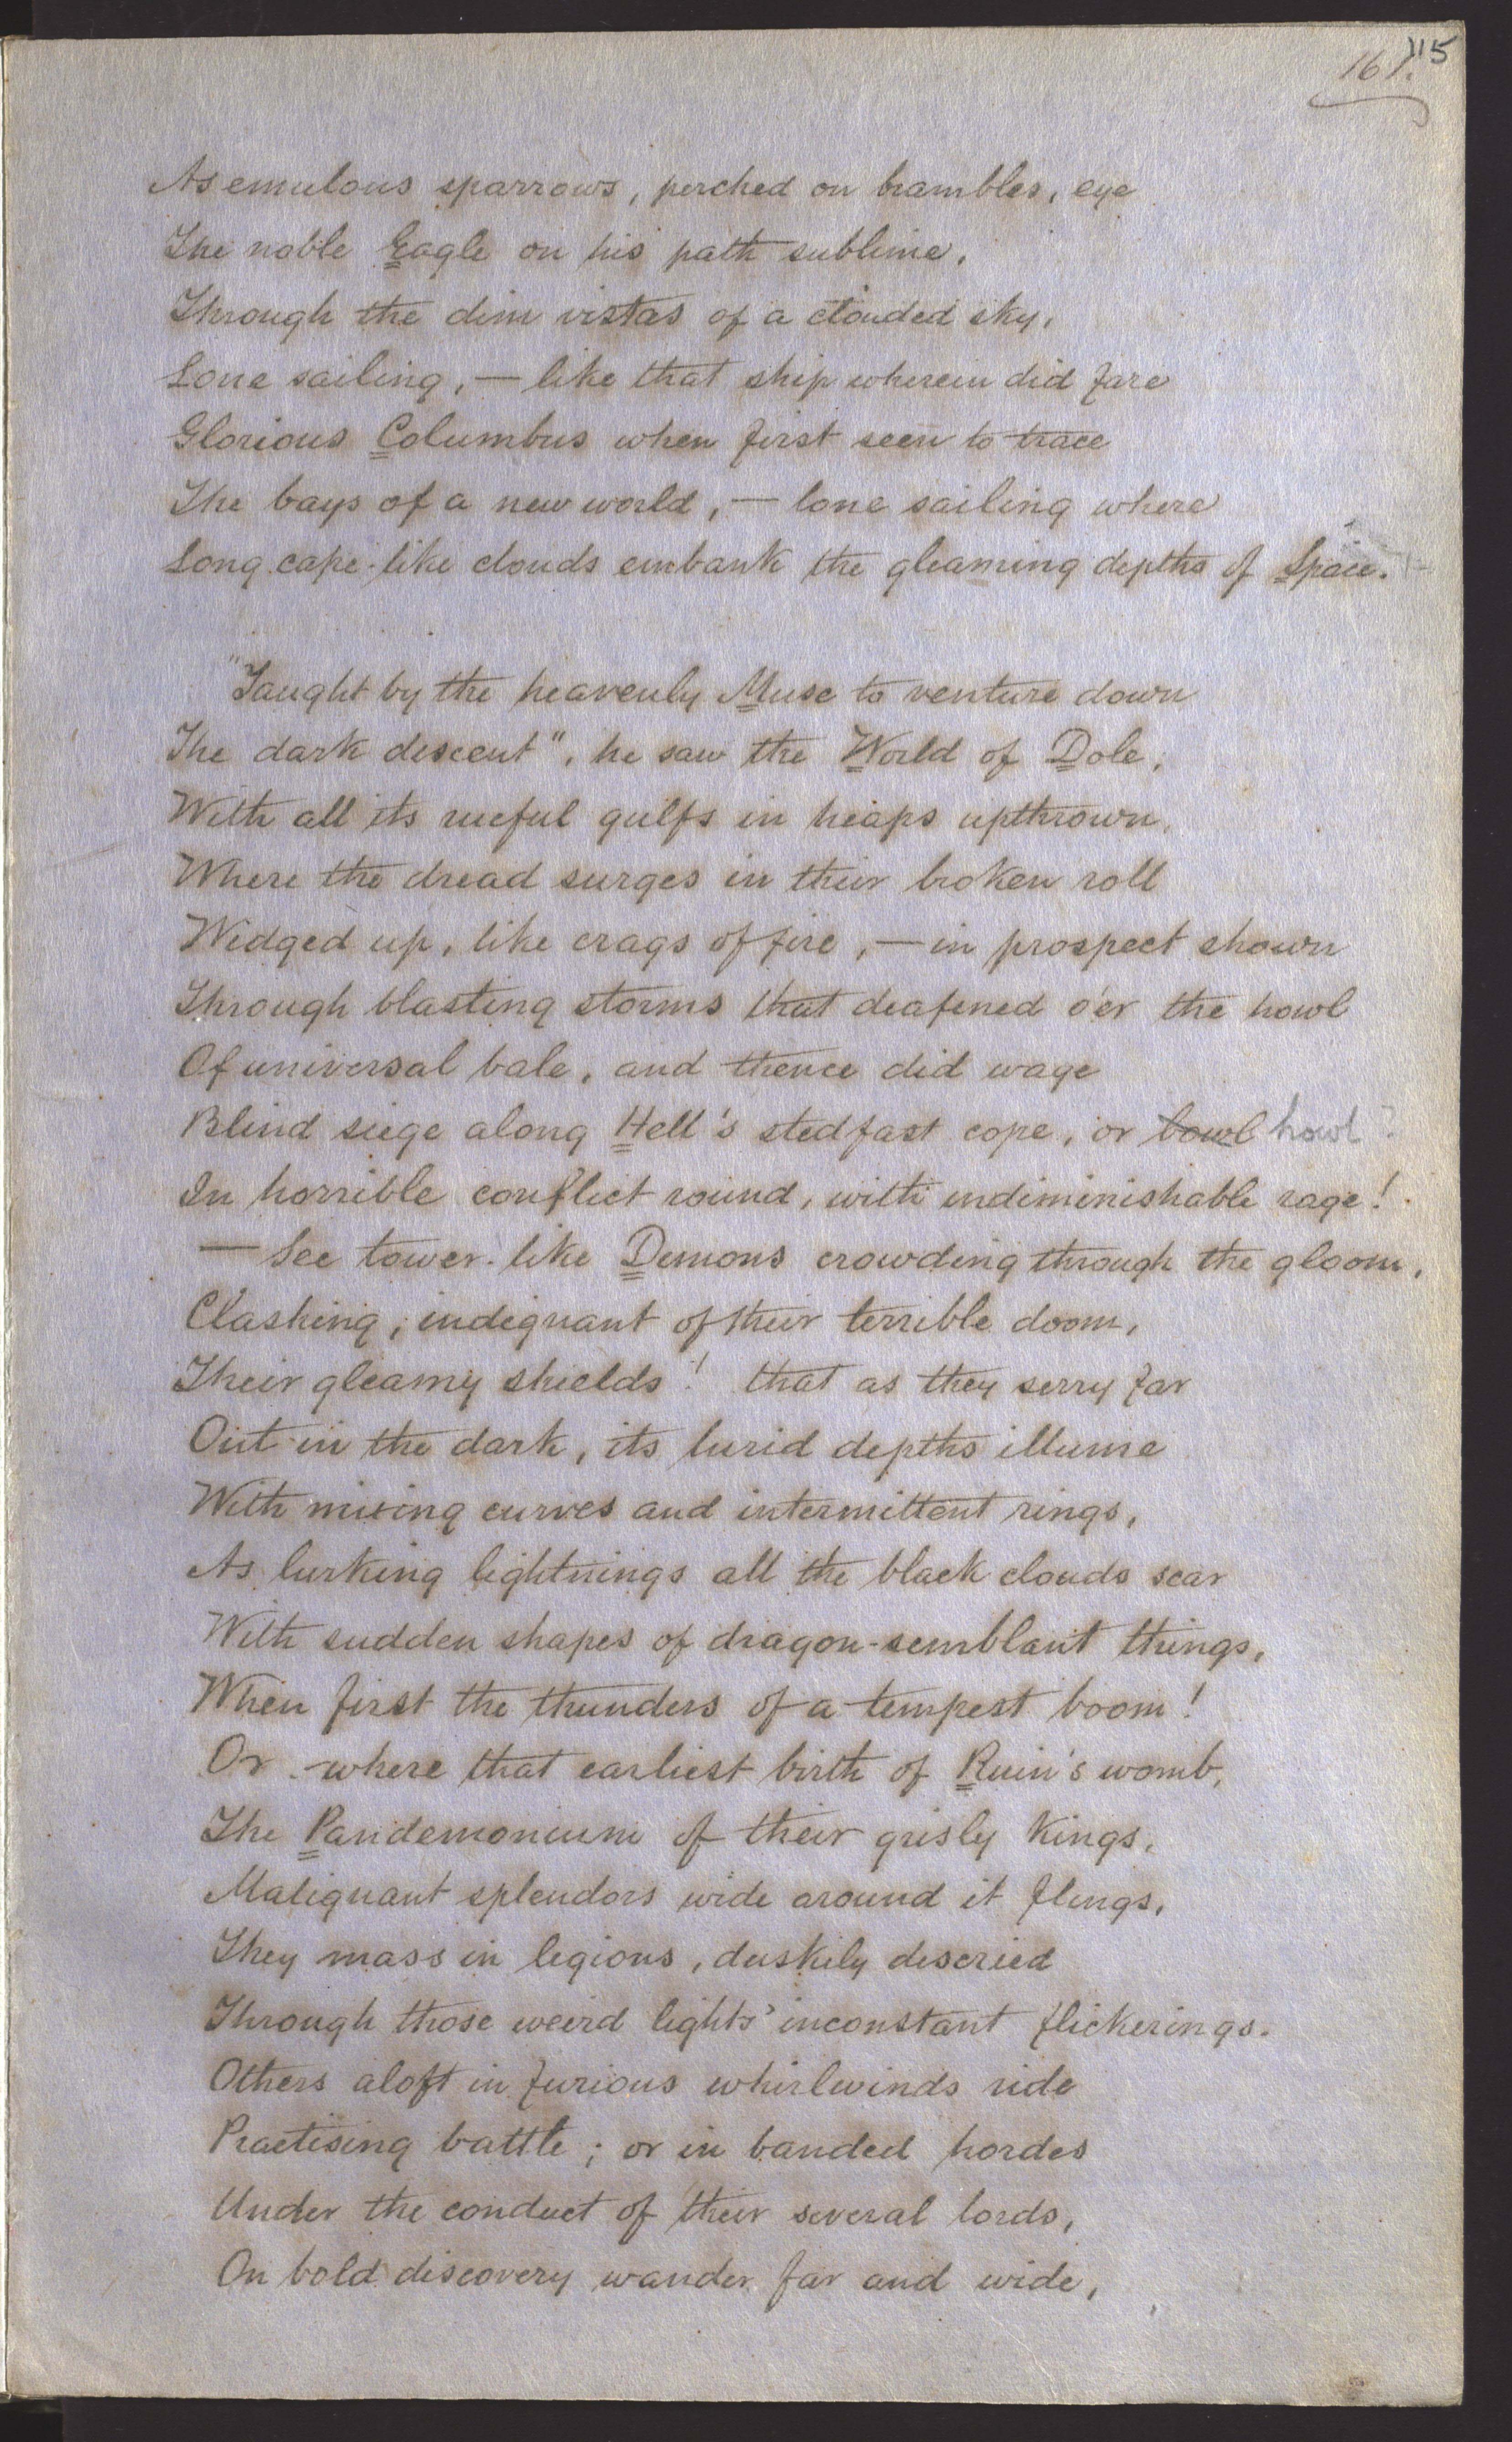 115
161.
As emulous sparrows, perched on brambles, eye
The noble Eagle on his path sublime,
Through the dim vistas of a clouded sky,
Lone sailing, — like that ship wherein did fare
Glorious Columbus when first seen to trace
The bays of a new world, — lone sailing where
Long cape-like clouds embank the gleaming depths of Space.
"Taught by the heavenly Muse to venture down
The dark descent", he saw the World of Dole,
With all its rueful gulfs in heaps upthrown,
Where the dread surges in their broken roll
Widged up, like crags of fire, — in prospect shown
Through blasting storms that deafened o'er the howl
Of universal bale, and thence did wage
Blind siege along Hell's stedfast cope, or bowl howl?
In horrible conflict round, with undiminishable rage!
— See tower-like Demons crowding through the gloom,
Clashing, indignant of their terrible doom,
Their gleamy shields! that as they serry far
Out in the dark, its lurid depths illume
With mixing curves and intermittent rings,
As lurking lightnings all the black clouds scar
With sudden shapes of dragon-semblant things,
When first the thunders of a tempest boom!
Or where that earliest birth of Ruin's womb,
The Pandemonium of their grisly Kings,
Malignant splendors wide around it flings,
They mass in legions, duskily descried
Through those weird lights' inconstant flickerings.
Others aloft in furious whirlwinds ride
Practising battle; or in banded hordes
Under the conduct of their several lords,
On bold discovery wander far and wide,